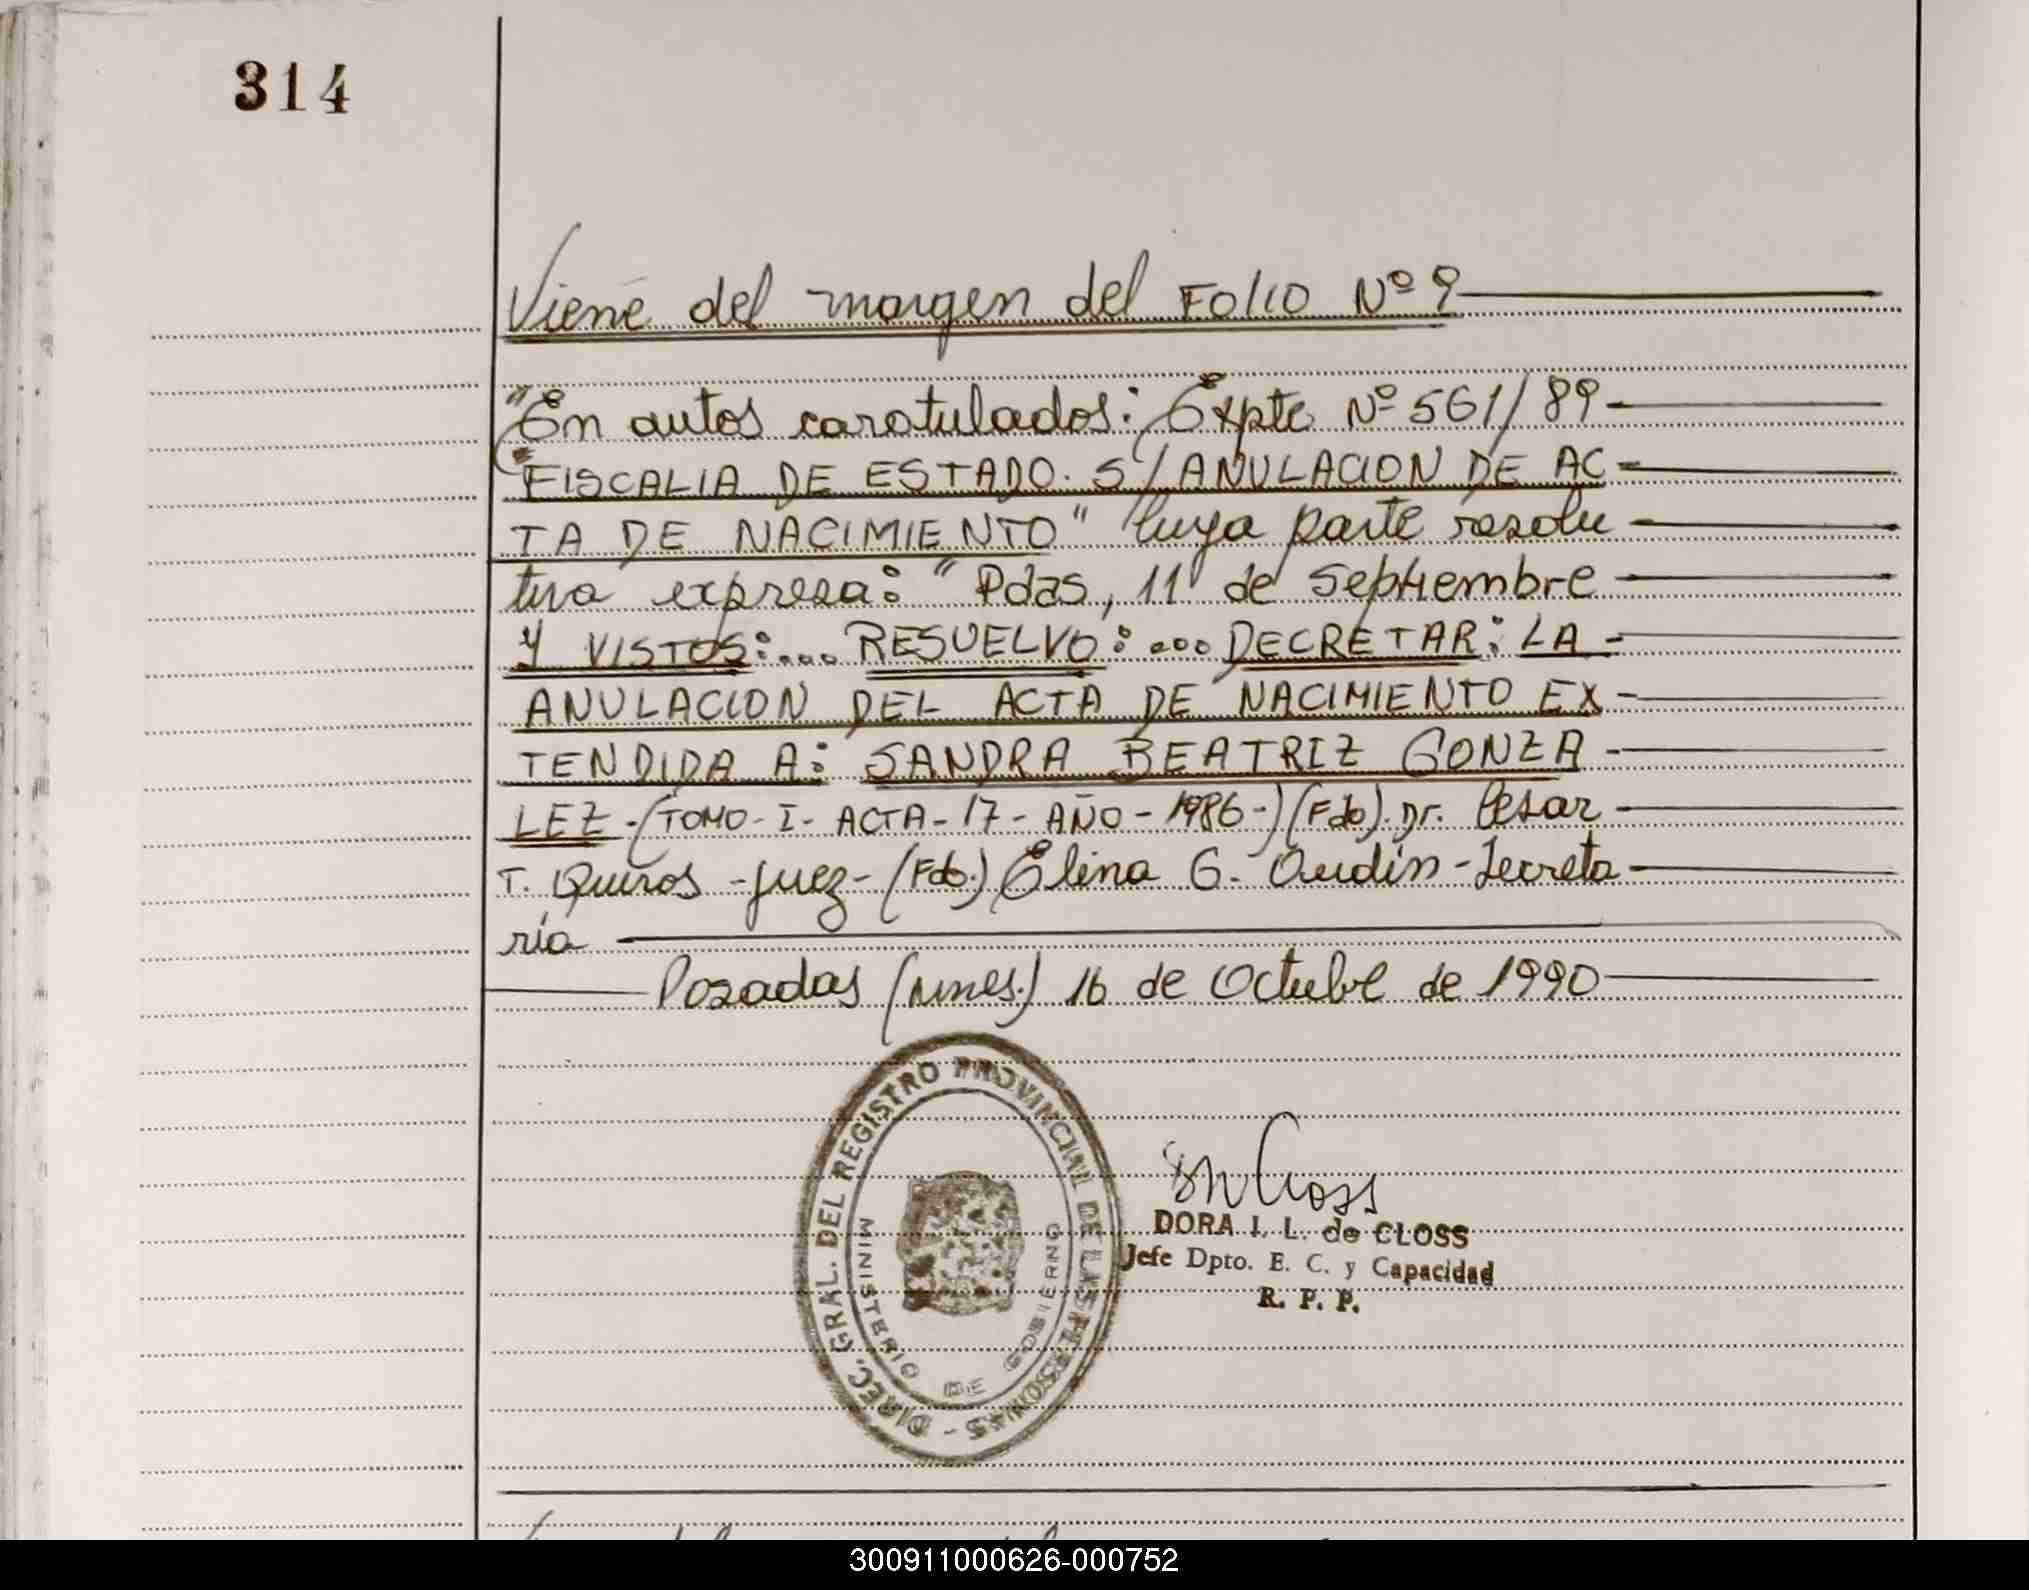 314
Viene del margen del FOLIO Nº 9
"En autos caratulados: Expte Nº 561/89
"FISCALIA DE ESTADO. S/ ANULACION DE AC
TA DE NACIMIENTO" Cuya parte resolu
tiva expresa: "Pdas, 11 de Septiembre
Y VISTOS:... RESUELVO: ... DECRETAR: LA
ANULACION DEL ACTA DE NACIMIENTO EX
TENDIDA A: SANDRA BEATRIZ GONZA
LEZ-(TOMO-I-ACTA-17-AÑO-1986-)(Fdo). Dr. Cesar
T. Quiros -Juez- (Fdo.) Elina G. Oudin-Secreta
ria
Posadas (Mnes.) 16 de Octubre de 1990
DIREC. GRAL. DEL REGISTRO PROVINCIAL DE LAS PERSONAS -
MINISTERIO DE GOBIERNO
DORA I. L. de CLOSS
Jefe Dpto. E. C. y Capacidad
R. P. P.
300911000626-000752